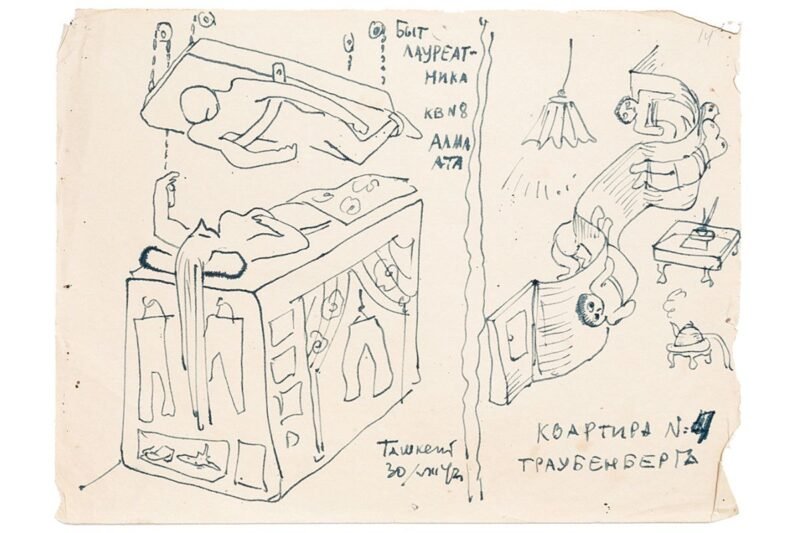 БЫТ
ЛАУРЕАТ-
НИКА
КВ N8
АЛМА
АТА
Ташкент
КВАРТИРА N:4
ТРАУБЕНБЕРГЪ